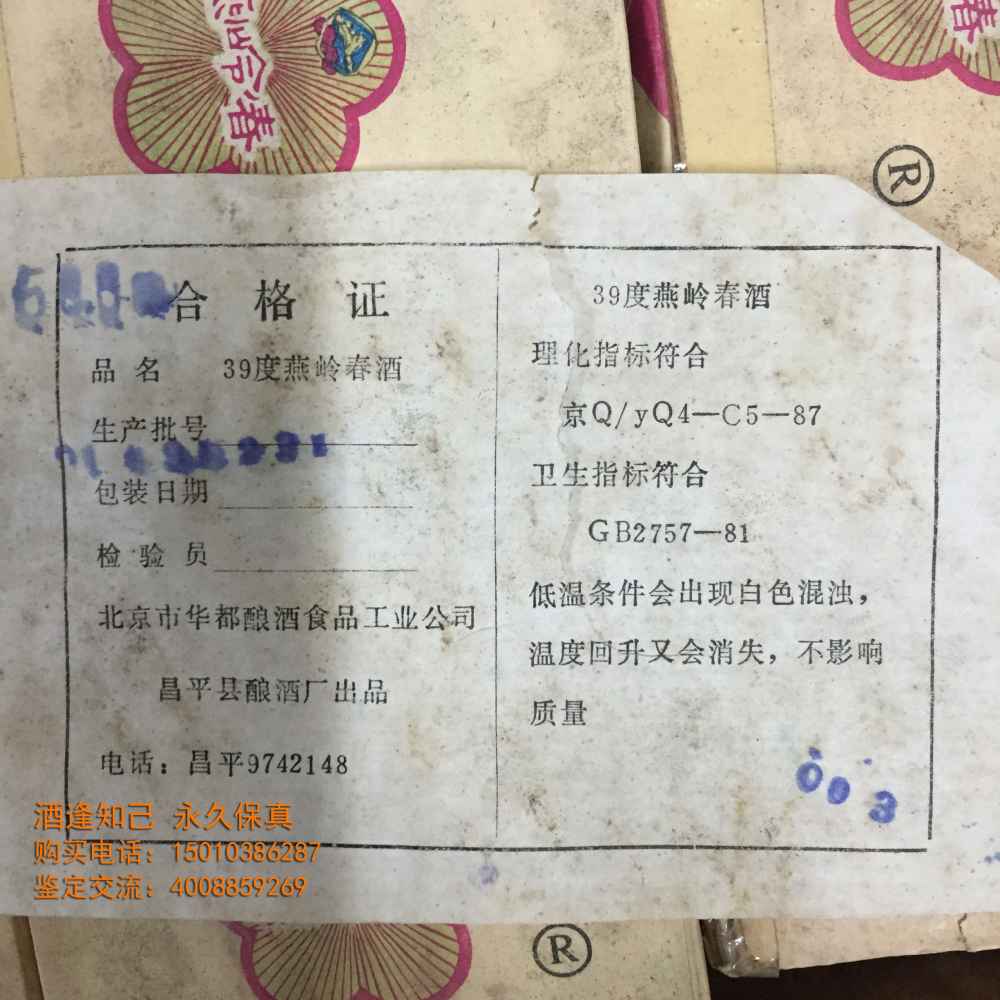 春
®
合格证
品名 39度燕岭春酒
生产批号
包装日期
检验员
北京市华都酿酒食品工业公司
昌平县酿酒厂出品
电话：昌平9742148
39度燕岭春酒
理化指标符合
京Q/yQ4—C5—87
卫生指标符合
GB2757—81
低温条件会出现白色混浊，
温度回升又会消失，不影响
质量
003
酒逢知己 永久保真
购买电话：15010386287
鉴定交流：4008859269
®